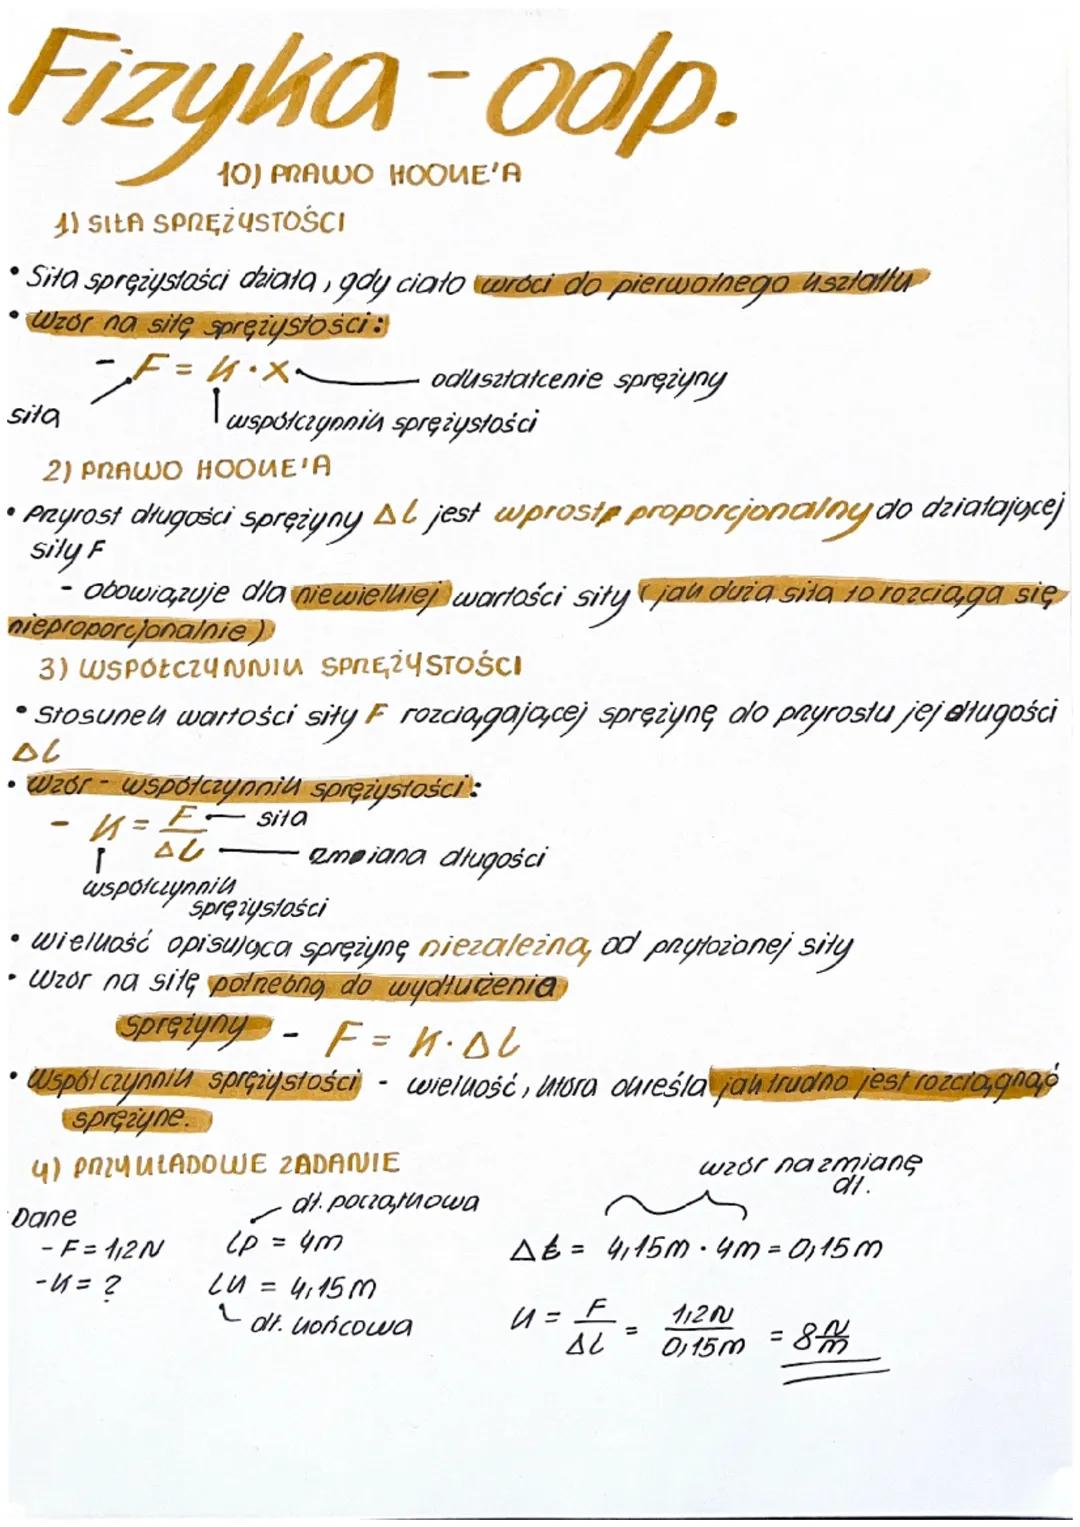 Fizyka - odp.
10) PRAWO HOOKE'A
1) SIŁA SPRĘŻYSTOŚCI
• Siła sprężystości działa, gdy ciało wróci do pierwotnego kształtu
• Wzór na siłę sprężystości:
- F = k · x odkształcenie sprężyny
siła współczynnik sprężystości
2) PRAWO HOOKE'A
• Przyrost długości sprężyny Δl jest wprost proporcjonalny do działającej
siły F
- obowiązuje dla niewielkiej wartości siły (jak duża siła to rozciąga się
nieproporcjonalnie)
3) WSPÓŁCZYNNIK SPRĘŻYSTOŚCI
• Stosunek wartości siły F rozciągającej sprężynę do przyrostu jej długości
Δl
• Wzór - współczynnik sprężystości:
- k = F siła
Δl zmiana długości
współczynnik
sprężystości
• Wielkość opisująca sprężynę niezależną od przyłożonej siły
• Wzór na siłę potrzebną do wydłużenia
sprężyny - F = k · Δl
• Współczynnik sprężystości - wielkość, która określa jak trudno jest rozciągnąć
sprężyne.
4) PRZYKŁADOWE ZADANIE
wzór na zmianę
dł.
dł. początkowa
Dane
- F = 1,2N lp = 4m Δl = 4,15m · 4m = 0,15m
- k = ? lk = 4,15m
dł. końcowa k = F/Δl = 1,2N/0,15m = 8 N/m